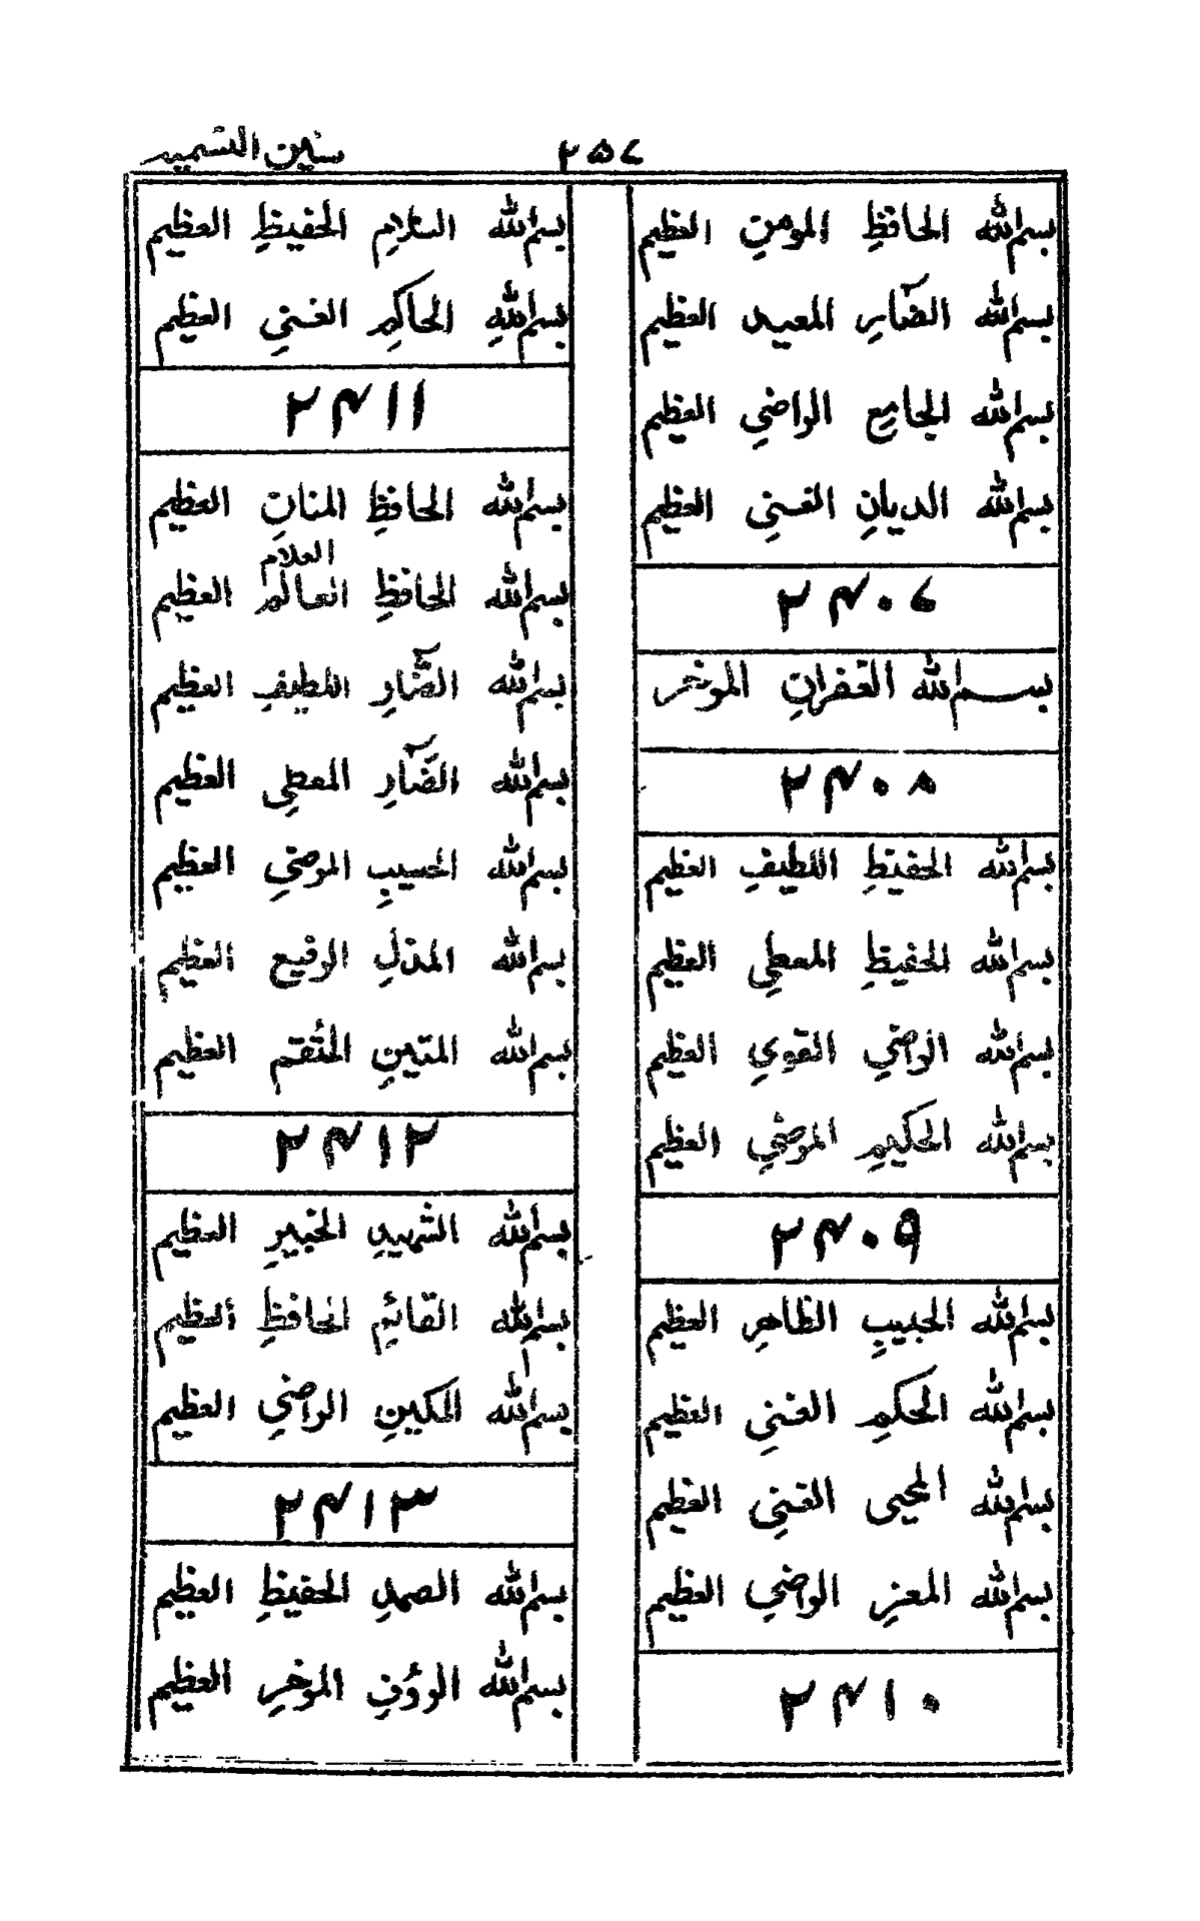 ۲۵۷ سنین التسمیہ
بسم الله الحافظِ المومنِ العظیم
بسم الله الضآرِ المعید العظیم
بسم الله الجامعِ الراضیِ العظیم
بسم الله الدیانِ الغنیِ العظیم
۲۴۰۷
بسم الله الغفرانِ الموخر
۲۴۰۸
بسم الله الحفیظِ اللطیفِ العظیم
بسم الله الحفیظِ المعطیِ العظیم
بسم الله الراضیِ القویِ العظیم
بسم الله الحکیمِ المرضیِ العظیم
۲۴۰۹
بسم الله الحبیبِ الظاهرِ العظیم
بسم الله الحکمِ الغنیِ العظیم
بسم الله المحیی الغنیِ العظیم
بسم الله المعزِ الراضیِ العظیم
۲۴۱۰
بسم الله السلامِ الحفیظِ العظیم
بسم اللهِ الحاکمِ الغنیِ العظیم
۲۴۱۱
بسم الله الحافظِ المنانِ العظیم
العلام
بسم الله الحافظِ العالم العظیم
بسم الله الضّآرِ اللطیفِ العظیم
بسم الله الضَّآرِ المعطیِ العظیم
بسم الله الحسیبِ المرضیِ العظیم
بسم الله المذلِ الرفیع العظیم
بسم الله المتینِ المُنتقم العظیم
۲۴۱۲
بسم الله الشهیدِ الخبیرِ العظیم
بسم الله القائمِ الحافظِ العظیم
بسم الله المکینِ الراضیِ العظیم
۲۴۱۳
بسم الله الصمدِ الحفیظِ العظیم
بسم الله الرؤفِ الموخرِ العظیم